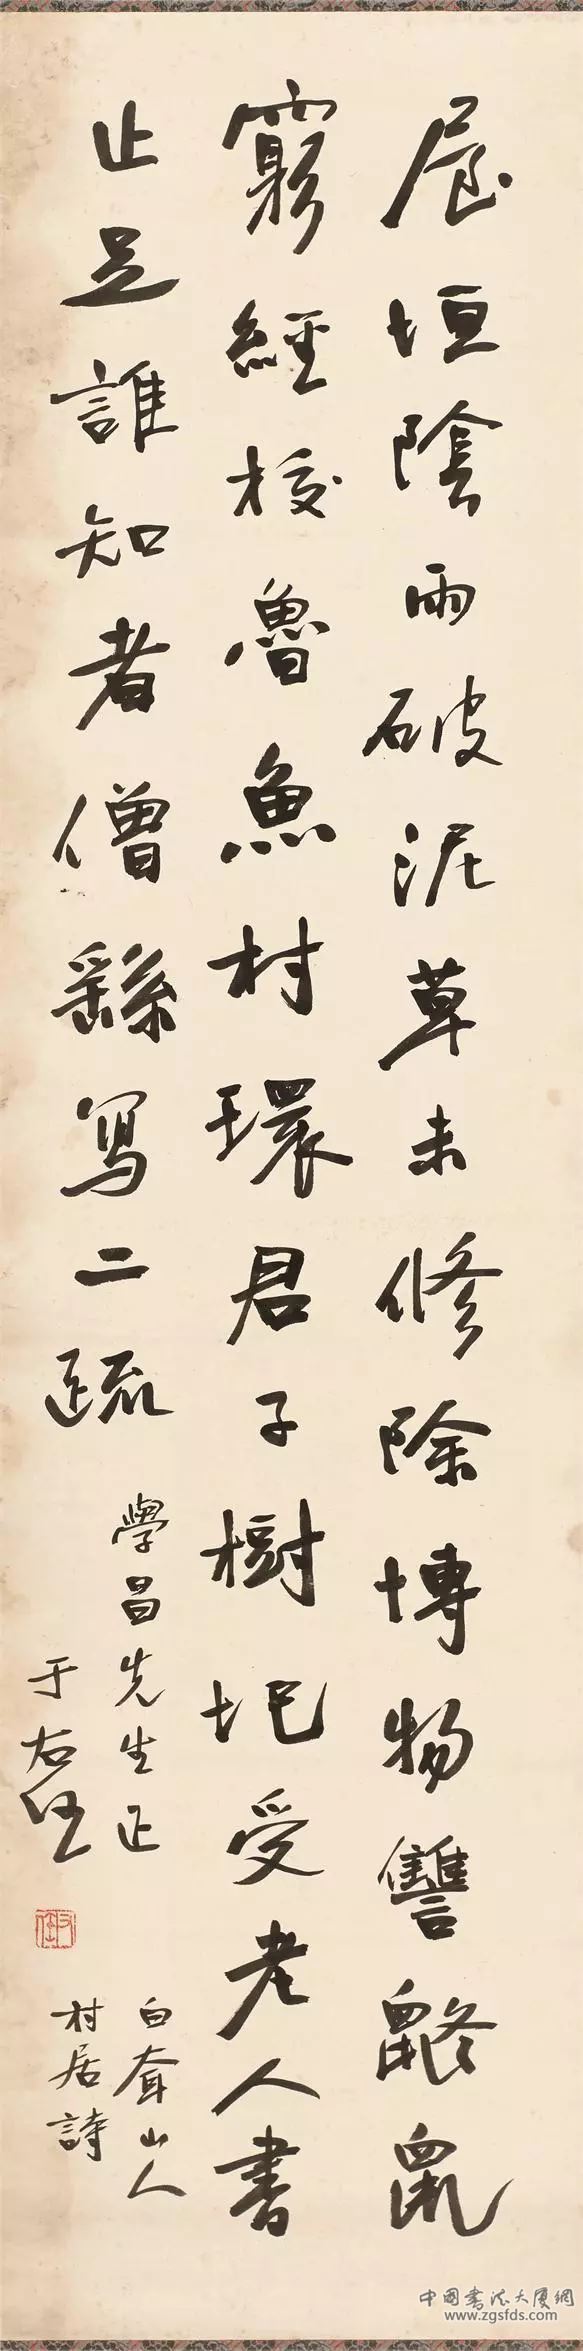 屋垣陰雨破泥草未修除博物讐鼨鼠
窮經校魯魚村環君子樹圯受老人書
止足誰知者僧繇寫二疏
學昌先生正
于右任
右任
白耷山人
村居詩
中國書法大厦網
www.zgsfds.com